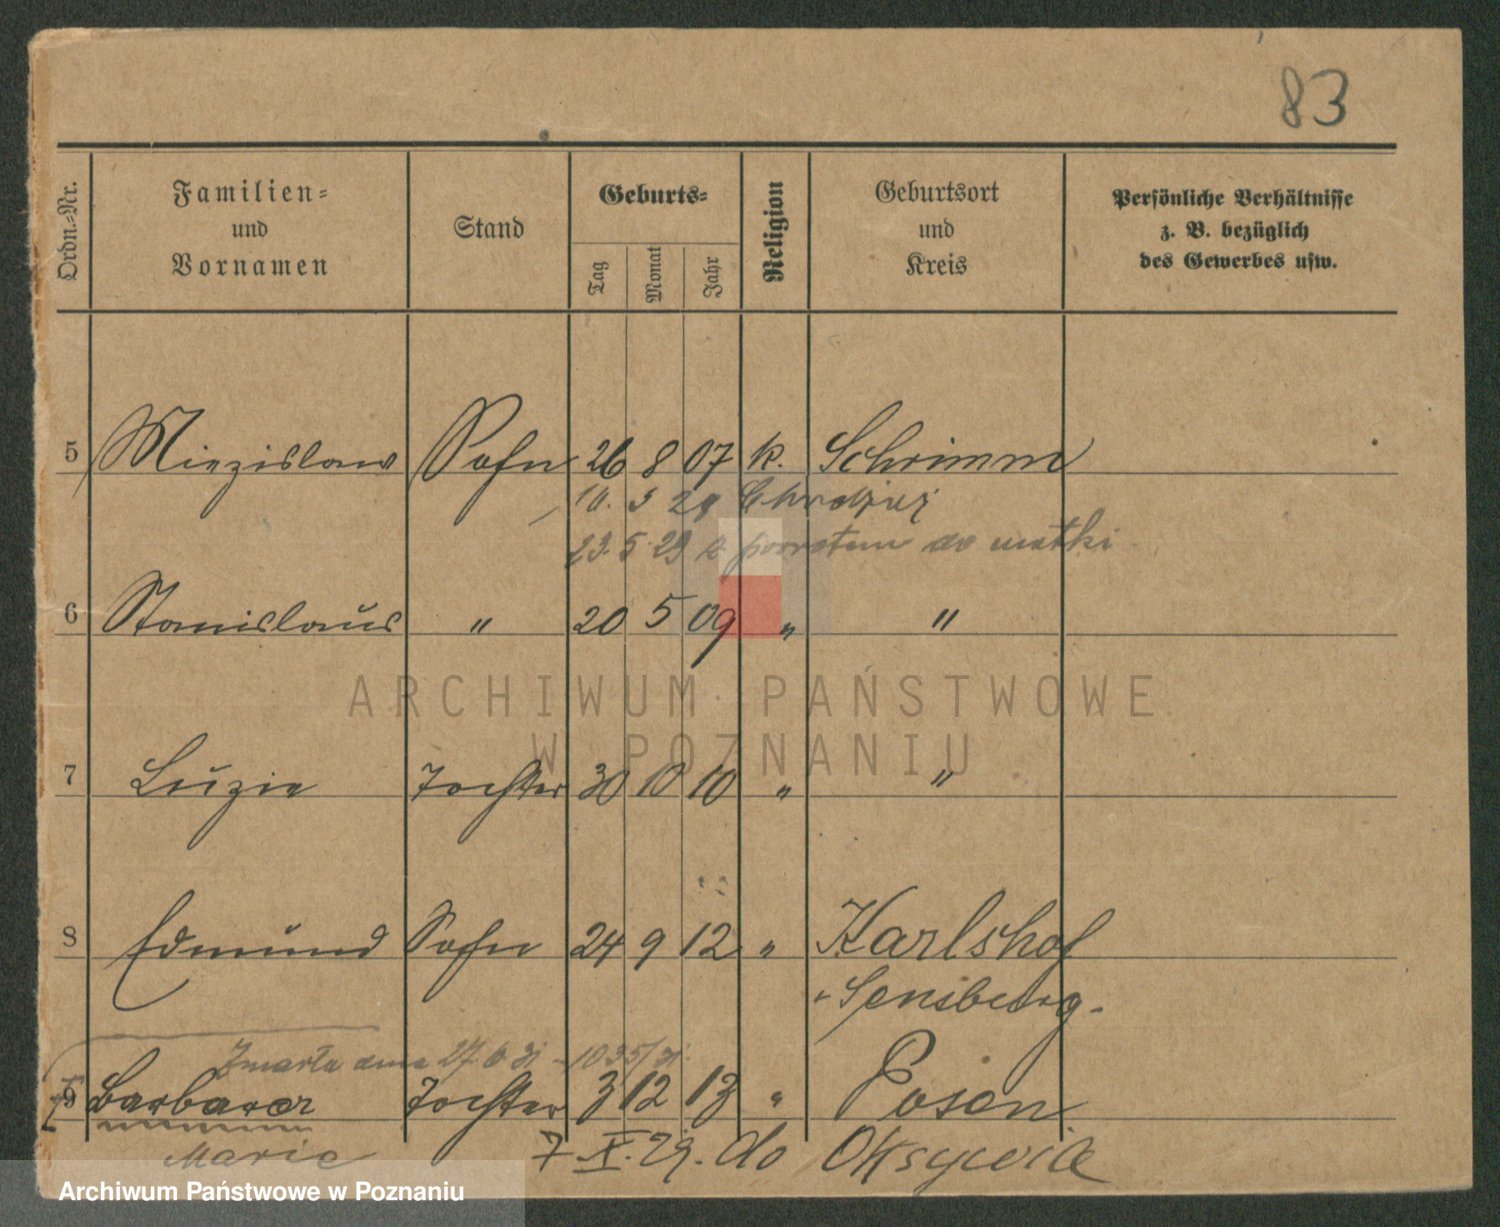 83
Ordn.-Nr.
Familien-
und
Vornamen
Stand
Geburts-
Tag
Monat
Jahr
Religion
Geburtsort
und
Kreis
Persönliche Verhältnisse
z. B. bezüglich
des Gewerbes usw.
5 Miezislaw Sohn 26 8 07 k. Schrimm
10. 3 29 Chodzież
23. 5 29 z powrotem do matki
6 Stanislaus " 20 5 09 " "
ARCHIWUM PAŃSTWOWE
W POZNANIU
7 Luzie Tochter 30 10 10 " "
8 Edmund Sohn 24 9 12 " Karlshof
Sensburg.
Zmarła dnia 27. 6 31 - 1035/31.
9 Barbara Tochter 3 12 13 " Posen
Marie 7 X. 29. do Oksywia
Archiwum Państwowe w Poznaniu